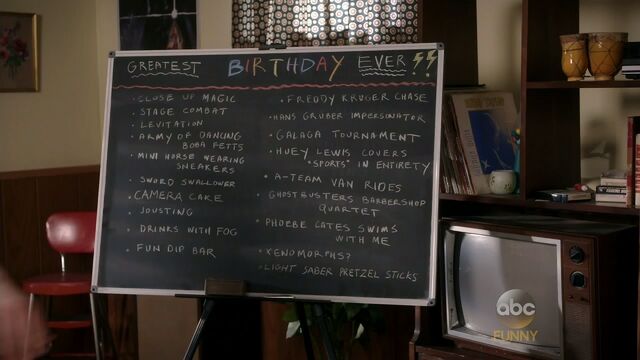 GREATEST BIRTHDAY EVER!!
• CLOSE UP MAGIC
• STAGE COMBAT
• LEVITATION
• ARMY OF DANCING
BOBA FETTS
• MINI HORSE WEARING
SNEAKERS
• SWORD SWALLOWER
• CAMERA CAKE
• JOUSTING
• DRINKS WITH FOG
• FUN DIP BAR
• FREDDY KRUGER CHASE
• HANS GRUBER IMPERSONATOR
• GALAGA TOURNAMENT
• HUEY LEWIS COVERS
"SPORTS" IN ENTIRETY
• A-TEAM VAN RIDES
GHOSTBUSTERS BARBERSHOP
QUARTET
• PHOEBE CATES SWIMS
WITH ME
• XENOMORPHS?
• LIGHT SABER PRETZEL STICKS
abc
FUNNY